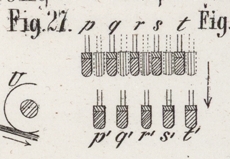 Fig. 27. p q r s t Fig.
U
p' q' r' s' t'